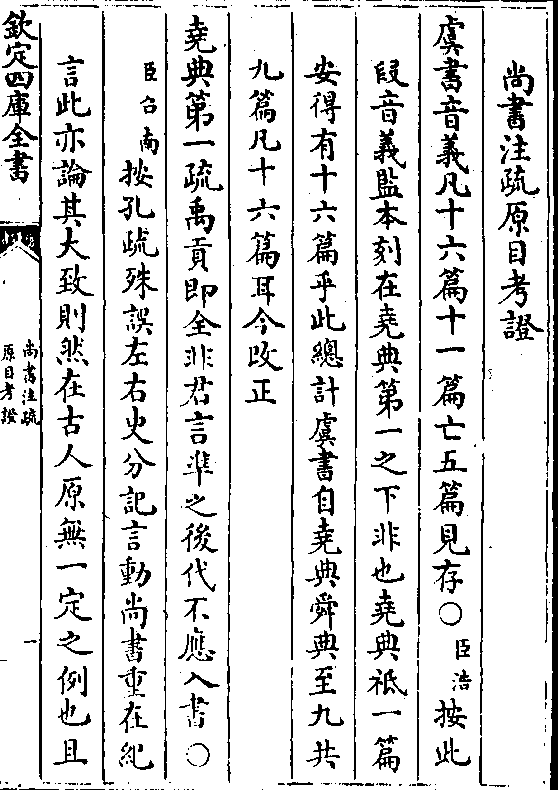 尚書注疏原目考證
虞書音義凡十六篇十一篇亡五篇見存○臣浩按此
段音義監本刻在堯典第一之下非也堯典祗一篇
安得有十六篇乎此總計虞書自堯典舜典至九共
九篇凡十六篇耳今改正
堯典第一疏禹貢即全非君言準之後代不應入書○
臣召南按孔疏殊誤左右史分記言動尚書重在紀
言此亦論其大致則然在古人原無一定之例也且
欽定四庫全書
尚書注疏
原目考證
一